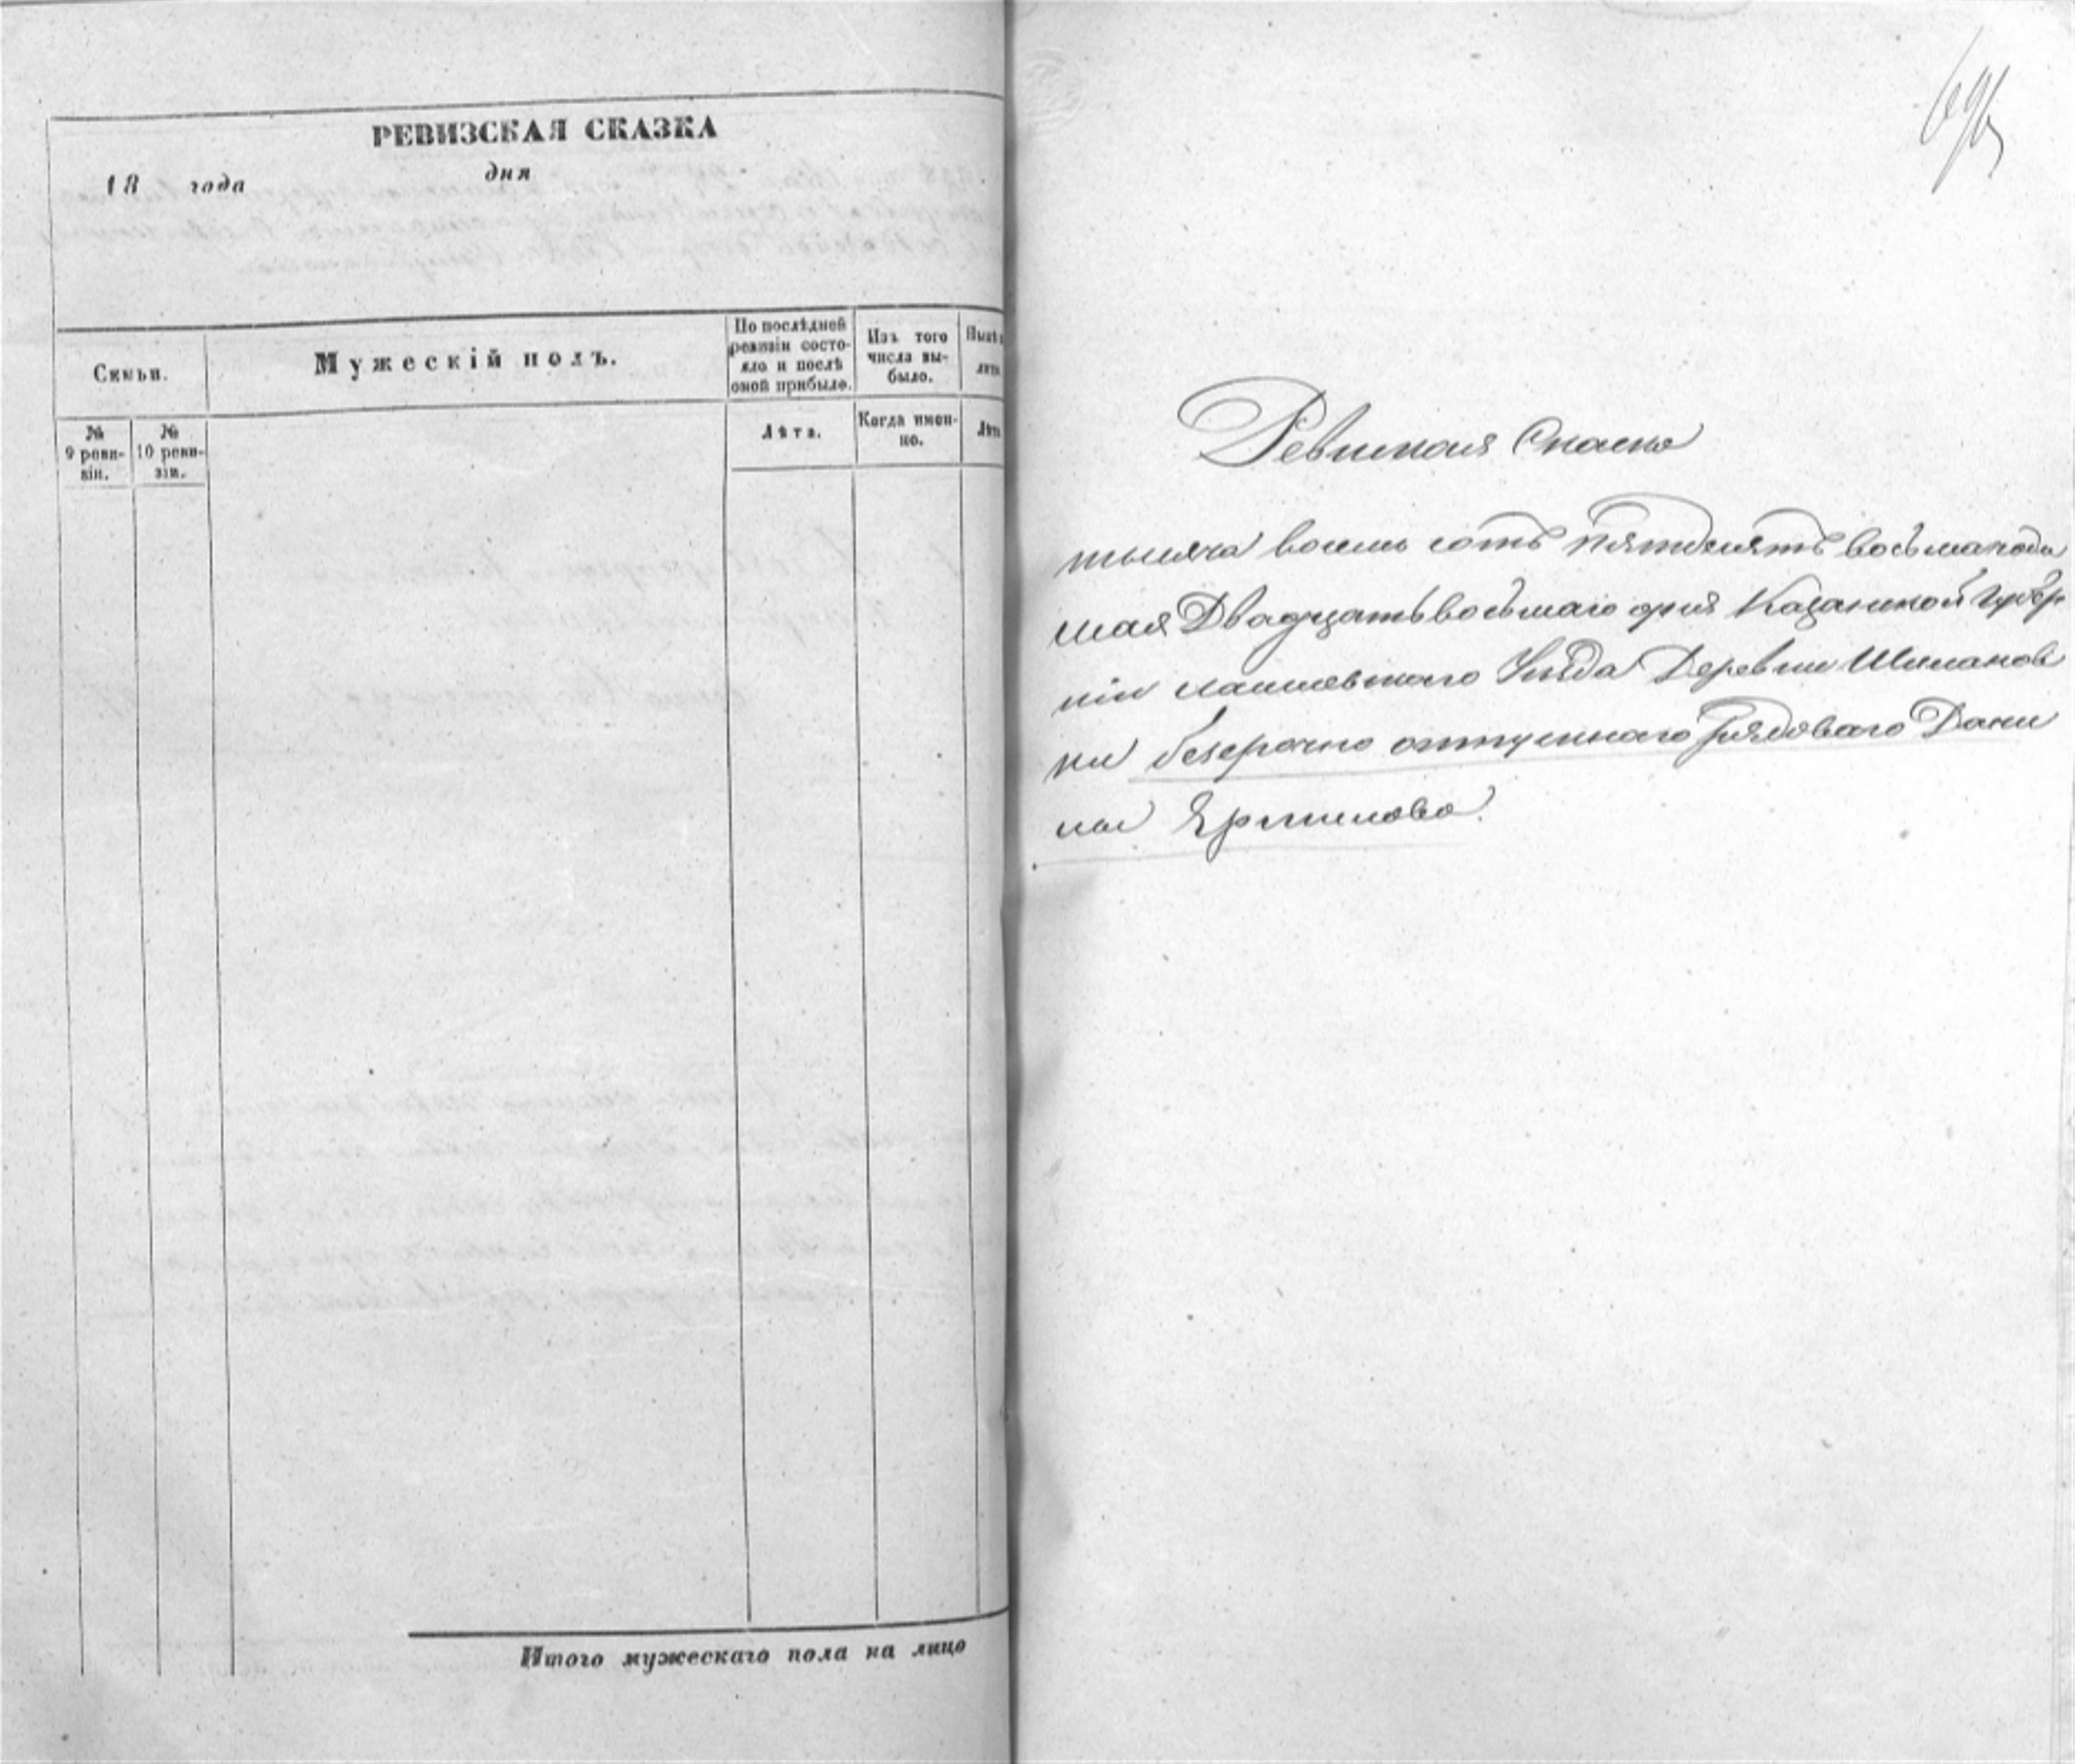 РЕВИЗСКАЯ СКАЗКА
18 года дня
Семьи.
Мужескій полъ.
По послѣдней
ревизіи состо-
яло и послѣ
оной прибыло.
Изъ того
числа вы-
было.
№
9 реви-
зіи.
№
10 реви-
зіи.
Лѣта.
Когда имен-
но.
Итого мужескаго пола на лицо
Ревиская Скаска
тысяча восемь сотъ пятдесятъ восьмагода
мая Двадцатьвосьмаго дня Казанской Губер
ніи лаишевскаго Уѣзда Деревни Шиланов
ки безсрочно отпускнаго Рядоваго Дани
лы Ярмилова.